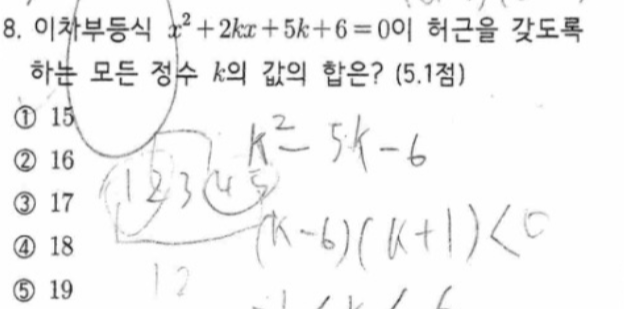 8. 이차부등식 x²+2kx+5k+6=0이 허근을 갖도록
하는 모든 정수 k의 값의 합은? (5.1점)
① 15
k² - 5k - 6
② 16
1 2 3 4 5
③ 17
(k-6)(k+1)<0
④ 18
⑤ 19
12
-1<k<6